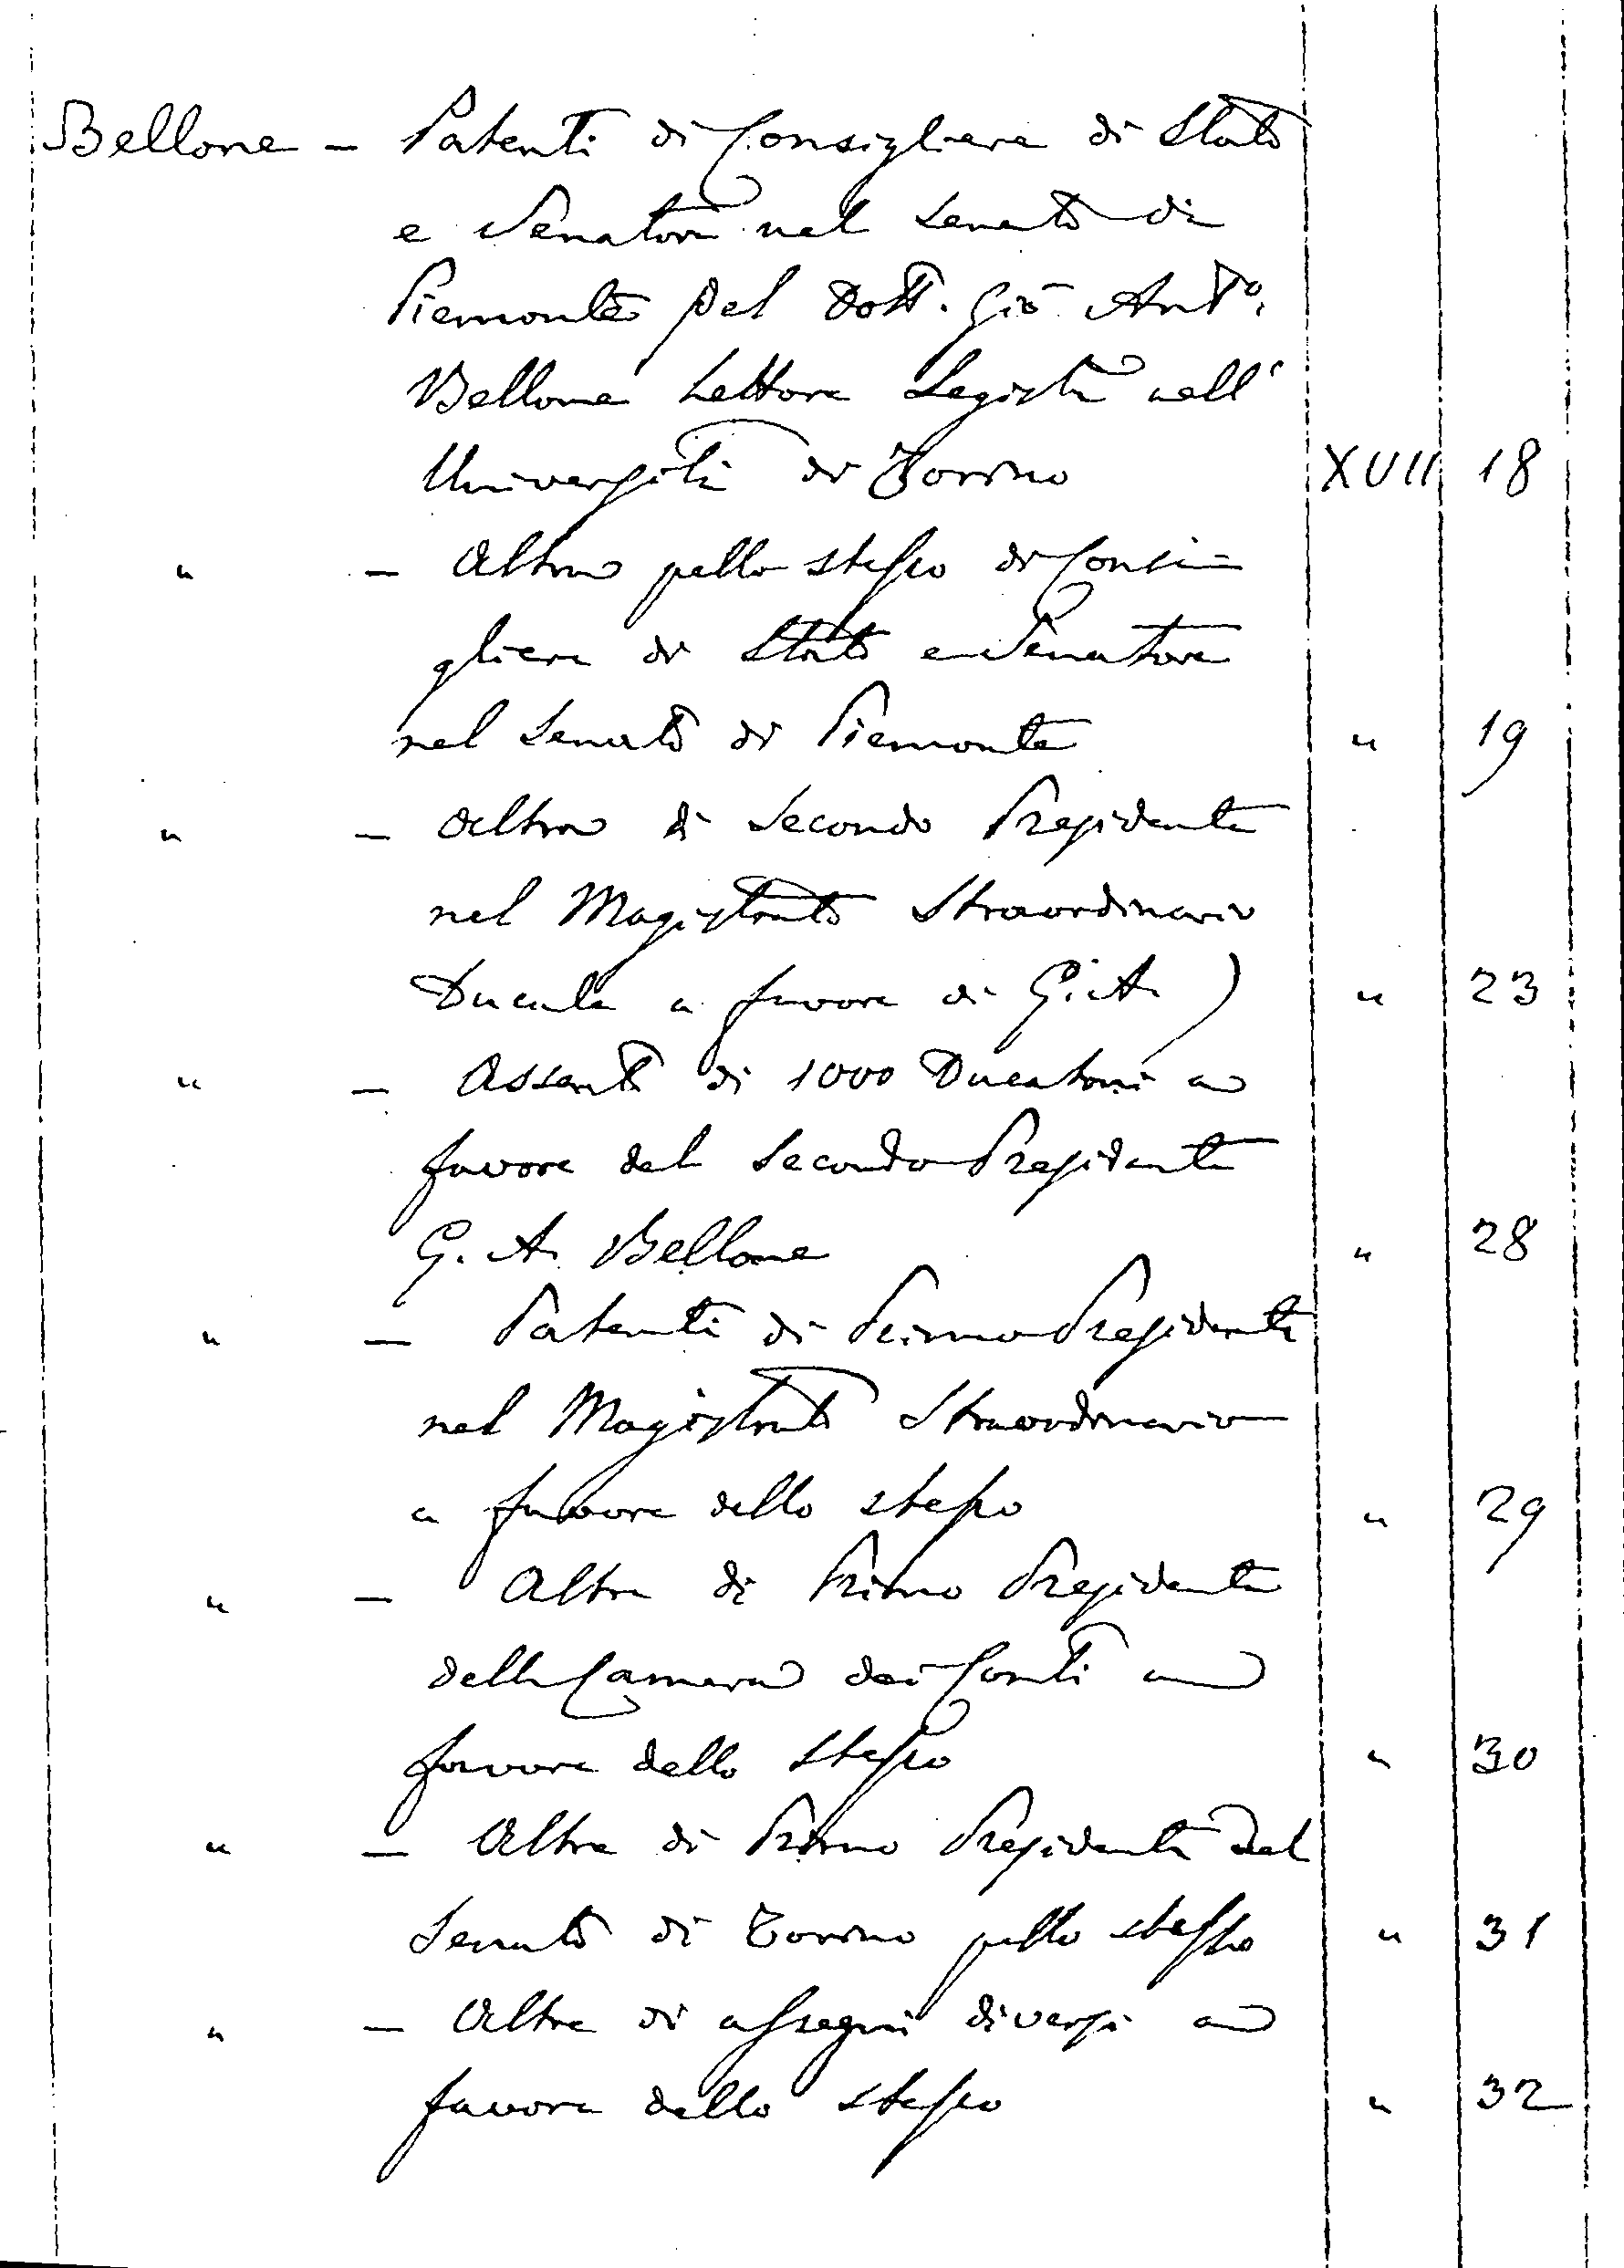 Bellone — Patenti di Consigliere di Stato
e Senatore nel Senato di
Piemonte pel Dott. Gio Ant.º
Bellone Lettore Legista nell'
Università di Torino XVII 18
" — Altra pello stesso di Consi=
gliere di Stato e Senatore
nel Senato di Piemonte " 19
" — Altra di Secondo Presidente
nel Magistrato Straordinario
Ducale a favore di G. A. ) " 23
" — Assento di 1000 Ducatoni a
favore del Secondo Presidente
G. A. Bellone " 28
" — Patenti di Primo Presidente
nel Magistrato Straordinario
a favore dello stesso " 29
" — Altre di Primo Presidente
della Camera dei Conti a
favore dello stesso " 30
" — Altre di Primo Presidente del
Senato di Torino pello stesso " 31
" — Altre di assegni diversi a
favore dello stesso " 32